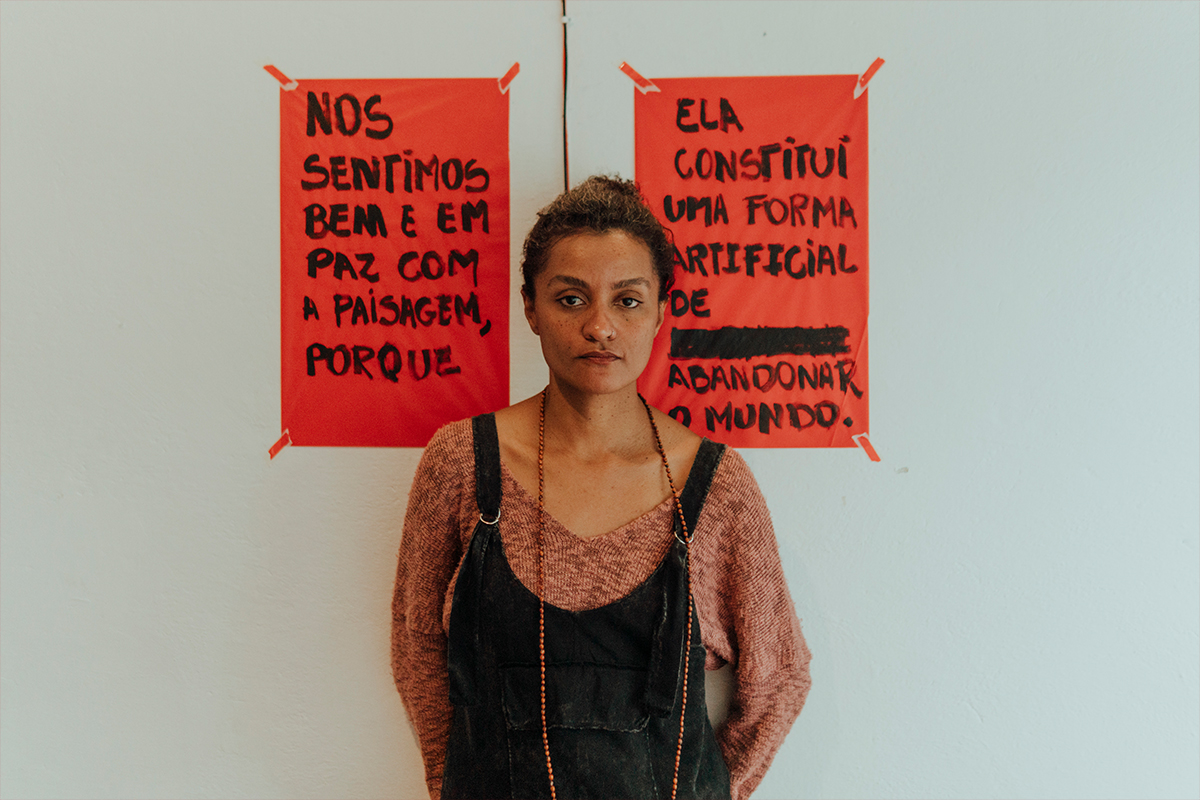 NOS
SENTIMOS
BEM E EM
PAZ COM
A PAISAGEM,
PORQUE
ELA
CONSTITUI
UMA FORMA
ARTIFICIAL
DE
ABANDONAR
O MUNDO.